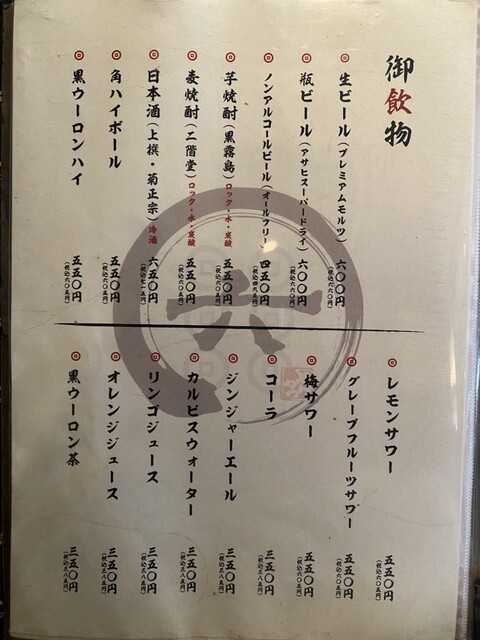 御飲物
生ビール(プレミアムモルツ) 六〇〇円
(税込六六〇円)
瓶ビール(アサヒスーパードライ) 六〇〇円
(税込六六〇円)
ノンアルコールビール(オールフリー) 四五〇円
(税込四九五円)
芋焼酎(黒霧島)ロック・水・炭酸 五五〇円
(税込六〇五円)
麦焼酎(二階堂)ロック・水・炭酸 五五〇円
(税込六〇五円)
日本酒(上撰・菊正宗)冷酒 六五〇円
(税込七一五円)
角ハイボール 五五〇円
(税込六〇五円)
黒ウーロンハイ 五五〇円
(税込六〇五円)
六
レモンサワー 五五〇円
(税込六〇五円)
グレープフルーツサワー 五五〇円
(税込六〇五円)
梅サワー 五五〇円
(税込六〇五円)
コーラ 三五〇円
(税込三八五円)
ジンジャーエール 三五〇円
(税込三八五円)
カルピスウォーター 三五〇円
(税込三八五円)
リンゴジュース 三五〇円
(税込三八五円)
オレンジジュース 三五〇円
(税込三八五円)
黒ウーロン茶 三五〇円
(税込三八五円)